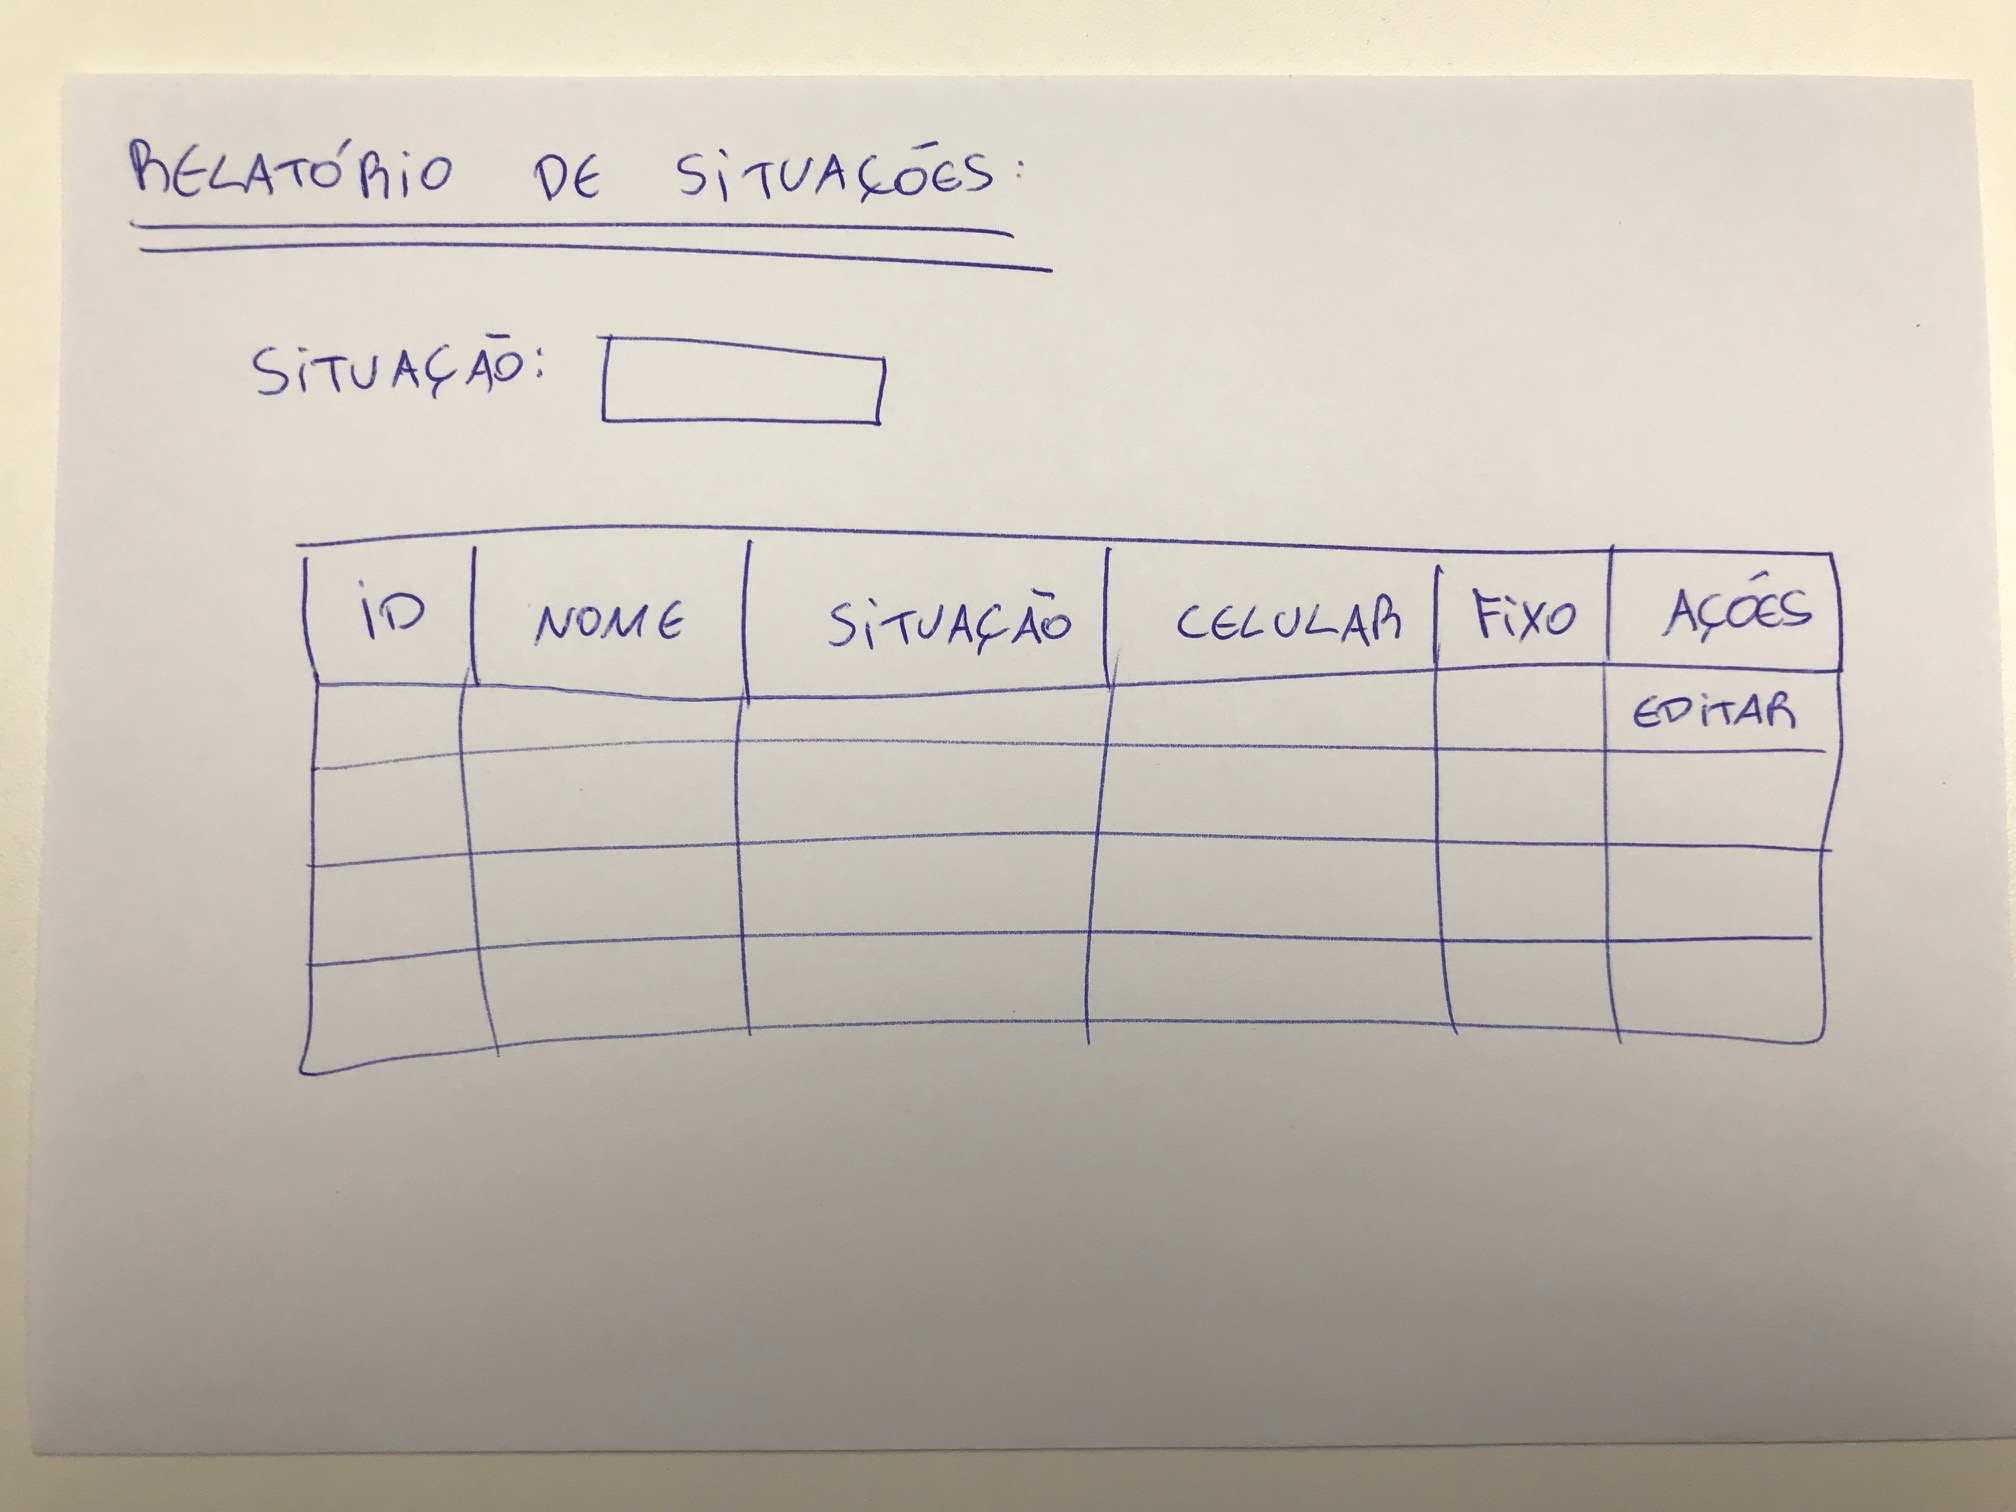 RELATÓRIO DE SITUAÇÕES:
SITUAÇÃO:
ID NOME SITUAÇÃO CELULAR FIXO AÇÕES
EDITAR